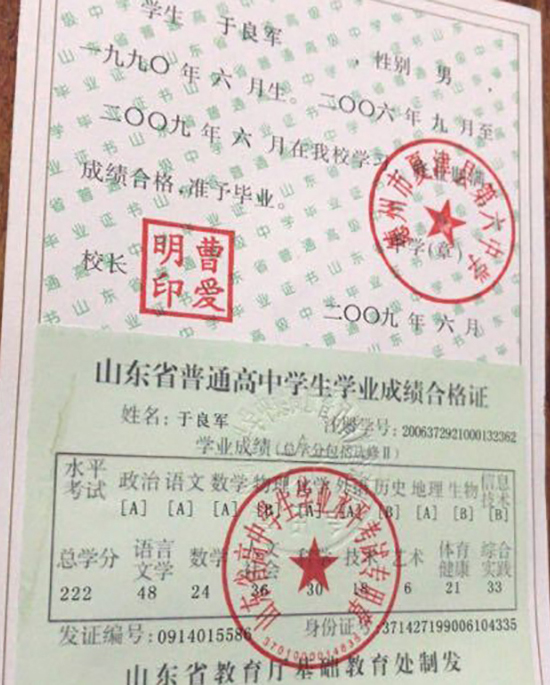 学生 于良军 ，性别 男 ，
一九九〇年 六 月生。二〇〇六年 九 月至
二〇〇九年 六 月在我校学习
成绩合格,准予毕业。
德州市夏津县第六中学
中学(章)
校长
曹爱明印
二〇〇九年 六 月
山东省普通高中学生学业成绩合格证
姓名:于良军 注册学号:2006372921000132362
学业成绩(总学分包括选修Ⅱ)
水平考试 政治 语文 数学 物理 化学 外语 历史 地理 生物 信息技术
[A] [A] [A] [B] [A] [B] [A] [B] [B]
总学分 语言文学 数学 技术 艺术 体育健康 综合实践
222 48 24 36 30 18 6 21 33
山东省高中学生学业水平考试专用章
3701000014835
发证编号:0914015586 身份证号:371427199006104335
山东省教育厅基础教育处制发